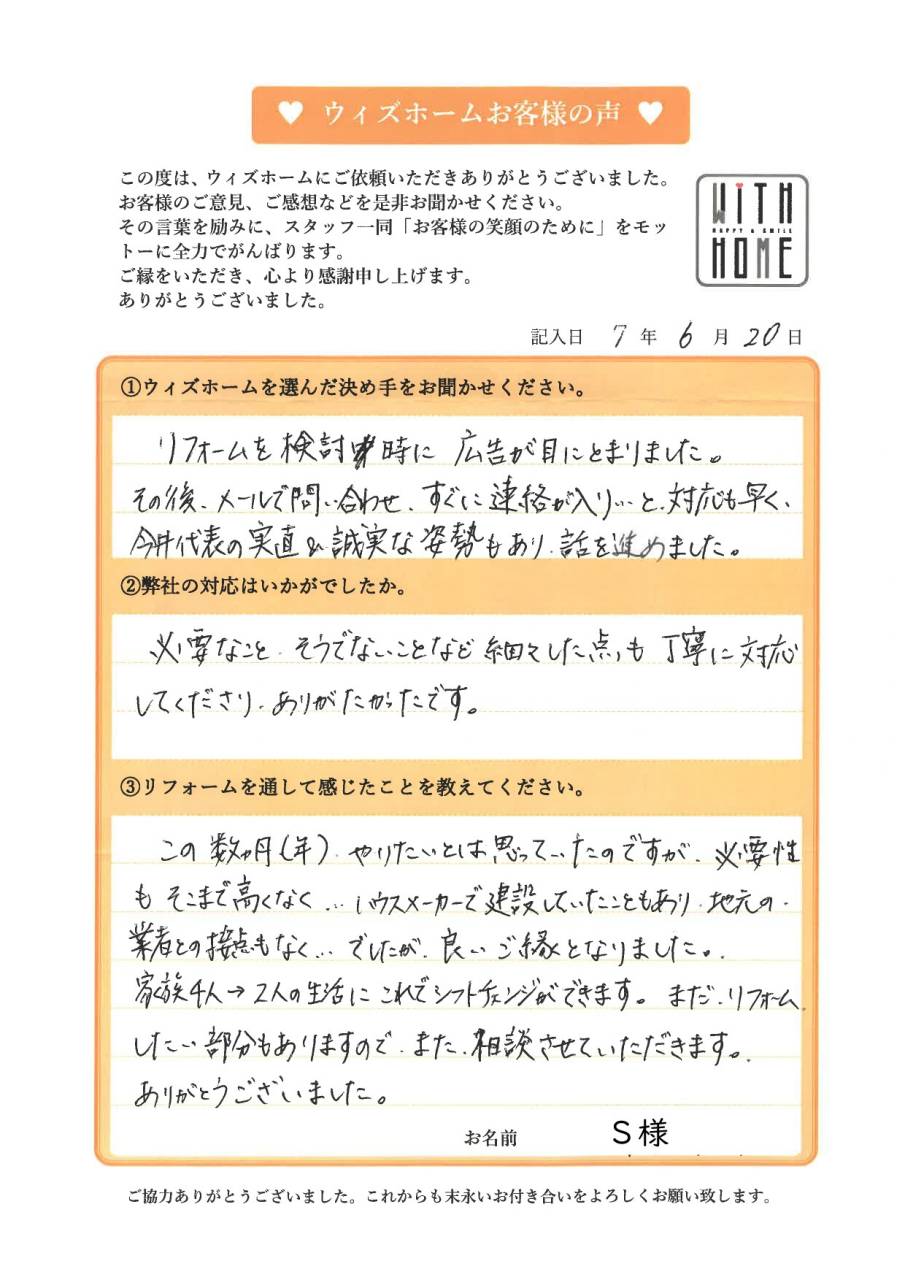 ♥ ウィズホームお客様の声 ♥
この度は、ウィズホームにご依頼いただきありがとうございました。
お客様のご意見、ご感想などを是非お聞かせください。
その言葉を励みに、スタッフ一同「お客様の笑顔のために」をモッ
トーに全力でがんばります。
ご縁をいただき、心より感謝申し上げます。
ありがとうございました。
WiTH
HAPPY & SMILE
HOME
記入日 7 年 6 月 20 日
①ウィズホームを選んだ決め手をお聞かせください。
リフォームを検討時に 広告が目にとまりました。
その後、メールで問い合わせ、すぐに連絡が入り…と、対応も早く、
今井代表の実直&誠実な姿勢もあり、話を進めました。
②弊社の対応はいかがでしたか。
必要なこと、そうでないことなど細々した点も丁寧に対応
してくださり、ありがたかったです。
③リフォームを通して感じたことを教えてください。
この数ヶ月(年)、やりたいとは思っていたのですが、必要性
もそこまで高くなく…ハウスメーカーで建設していたこともあり、地元の
業者との接点もなく…でしたが、良いご縁となりました。
家族4人→2人の生活にこれでシフトチェンジができます。まだ、リフォーム
したい部分もありますので、また、相談させていただきます。
ありがとうございました。
お名前 S様
ご協力ありがとうございました。これからも末永いお付き合いをよろしくお願い致します。